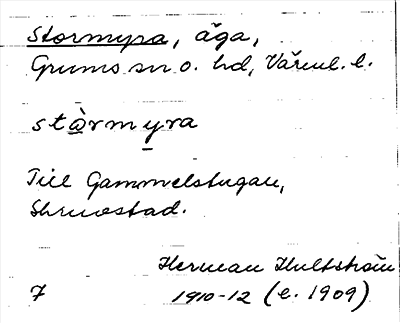 Stormyra, äga,
Grums sn o. hd, Värml. l.
stàrmyra
Till Gammelstugan,
Skruvstad.
Herman Hultström
7 1910-12 (e. 1909)